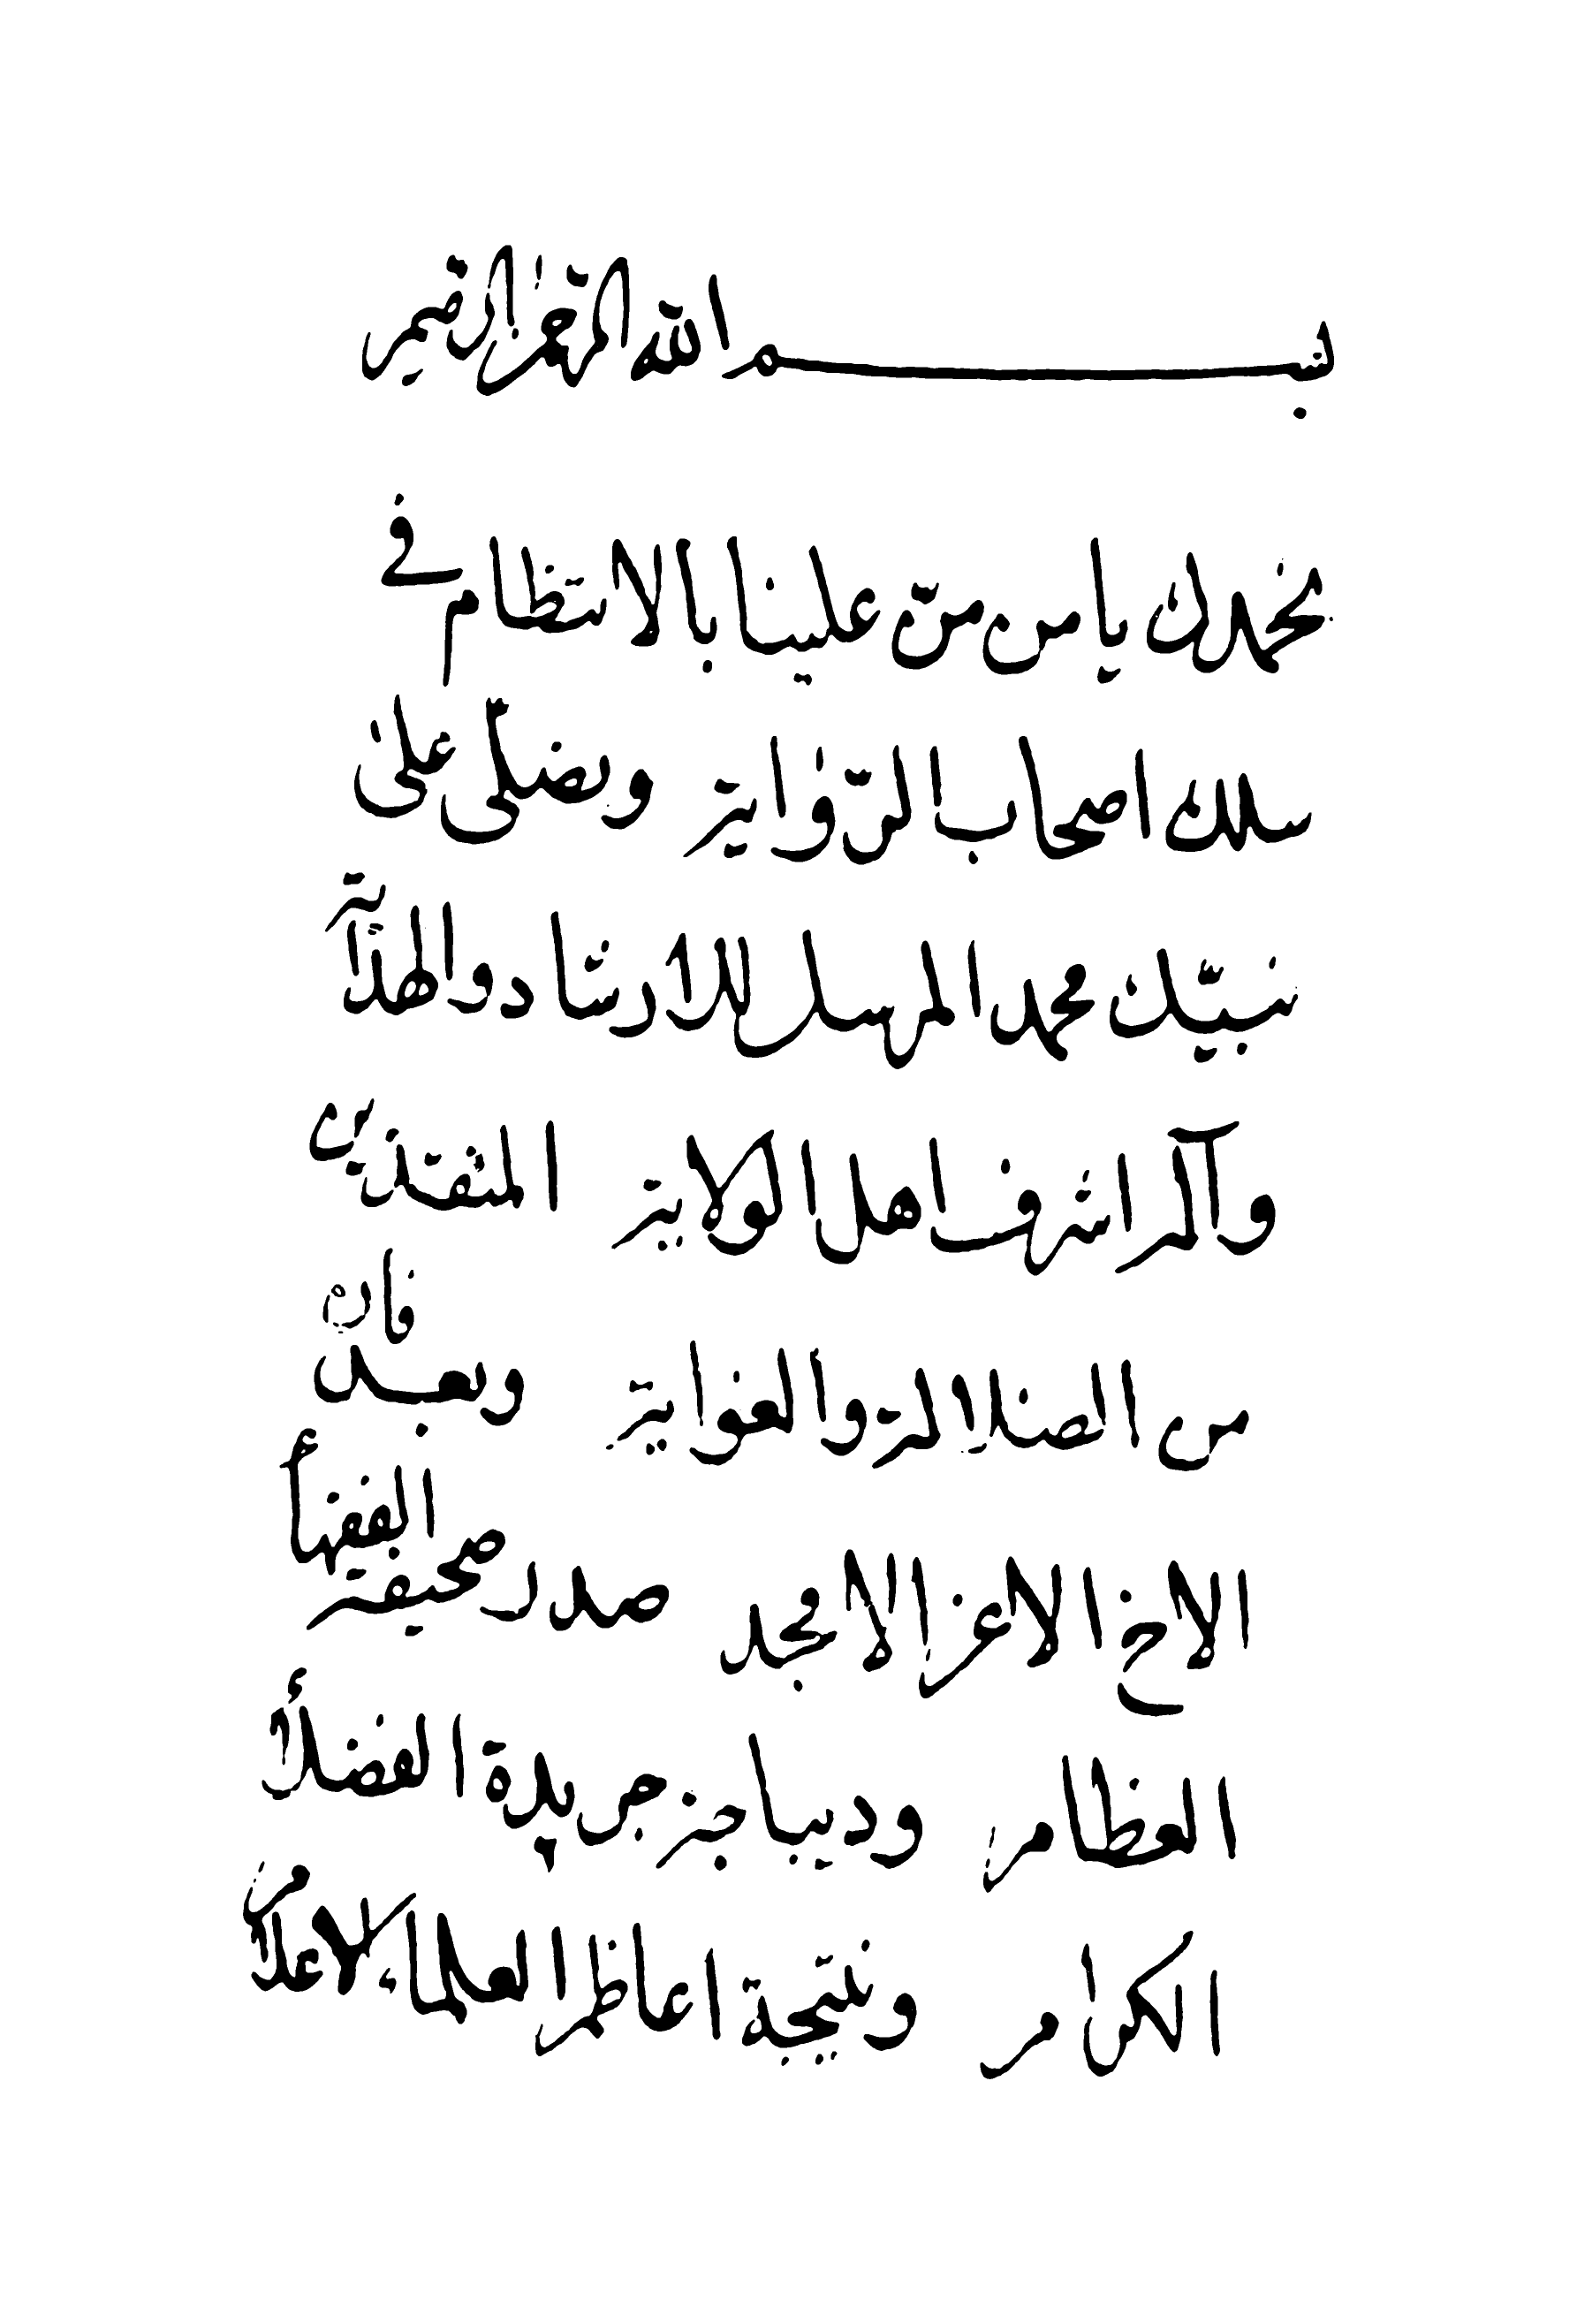 بسم الله الرحمن الرحيم
نحمدك يا من منّ علينا بالانتظام في
سلك اصحاب الرّواية ونصلّي على
نبيّك محمد المرسل للارشاد والهداية
وآله اشرف اهل الولاية المنقذين
من الضلالة والغواية وبعد فان
الاخ الاعز الامجد صدر صحيفة الفقهاء
العظام وديباجة جريدة الفضلاء
الكرام ونتيجة اعاظم العلماء الاعلام